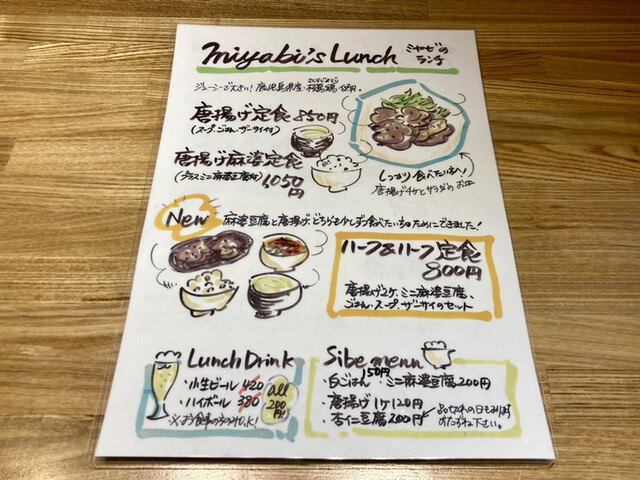 miyabi's Lunch ミヤビのランチ
ジューシーで大きい!鹿児島県産・桜島鶏使用。
唐揚げ定食 850円
(スープ、ごはん、ザーサイ付)
唐揚げ麻婆定食
(プラスミニ麻婆豆腐付) 1,050円
しっかり食べたい方へ!
唐揚げ4ケとサラダのお皿
New 麻婆豆腐と唐揚げ、どちらも少しずつ食べたい方のためにできました!
ハーフ&ハーフ定食
800円
唐揚げ2ケ、ミニ麻婆豆腐、
ごはん、スープ、ザーサイのセット
Lunch Drink
・小生ビール 420
・ハイボール 380
all 200円!
※お食事の方のみOK!
Sibe menu
・白ごはん 150円 ・ミニ麻婆豆腐 200円
・唐揚げ 1ケ 120円
・杏仁豆腐 200円 品切れの日もあります
おたずね下さい。